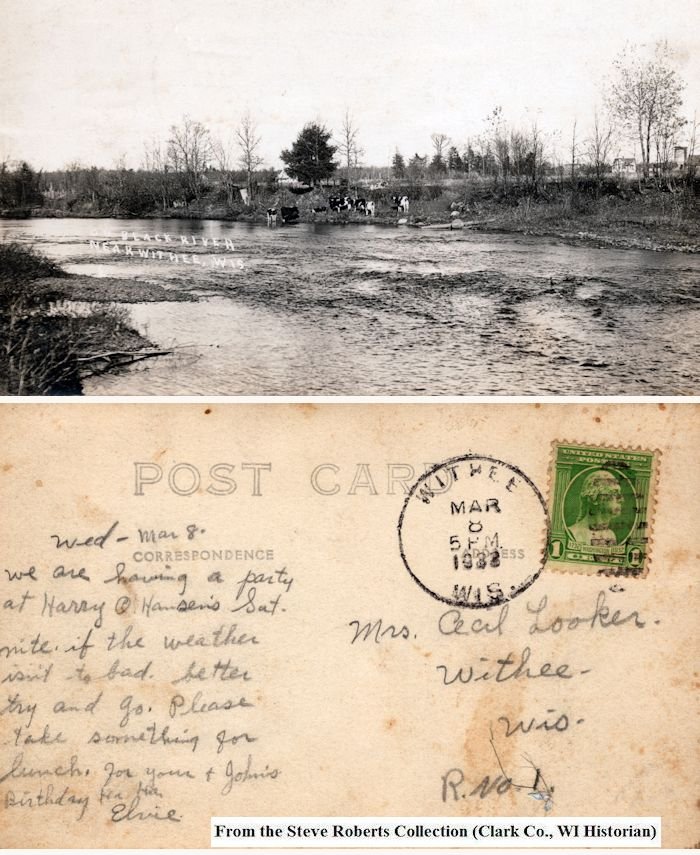 BLACK RIVER
NEAR WITHEE, WIS.
POST CARD
WITHEE
MAR
8
5 PM
1933
WIS.
UNITED STATES
POSTAGE
1 1
Wed - Mar 8.
CORRESPONDENCE
ADDRESS
we are having a party
at Harry O Hansen's Sat.
nite. if the weather
isn't to bad. better
try and go. Please
take something for
lunch. for your + John's
Birthday ha ha
Elvie
Mrs. Cecil Looker.
Withee-
Wis.
R. No 1.
From the Steve Roberts Collection (Clark Co., WI Historian)